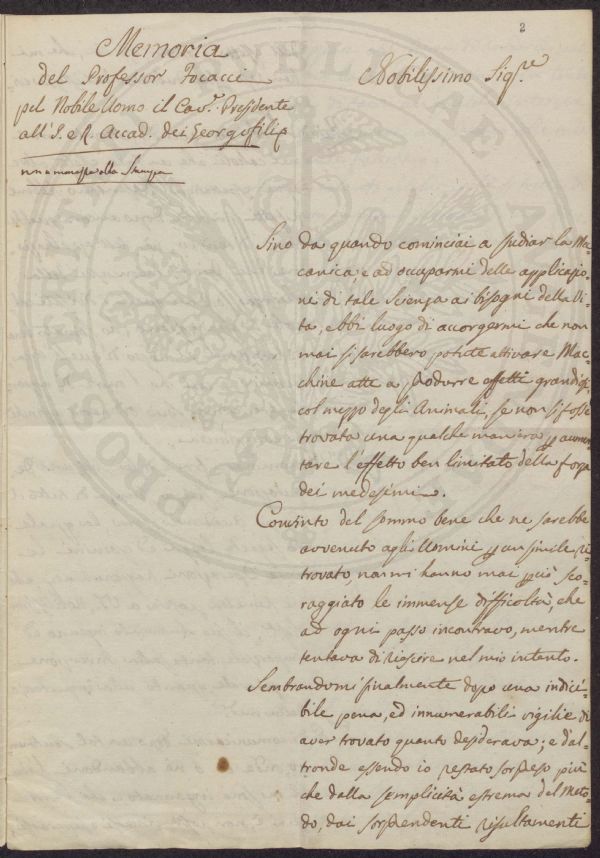 2
Memoria
del Professor Focacci
pel Nobile Uomo il Cav.r Presidente
all'I. e R. Accad. dei Georgofili
non ammessa alla Stampa
Nobilissimo Sig.re
Sino da quando cominciai a studiar la Mec-
canica, e ad occuparmi delle applicazio-
ni di tale Scienza ai bisogni della Vi-
ta, ebbi luogo di accorgermi che non
mai si sarebbero potute attivare Mac-
chine atte a produrre effetti grandiosi,
col mezzo degli Animali, se non si fosse
trovata una qualche maniera p aumen-
tare l'effetto ben limitato della forza
dei medesimi.
Convinto del sommo bene che ne sarebbe
avvenuto agli Uomini p un simile ri-
trovato, non mi hanno mai p ciò sco-
raggiato le immense difficoltà, che
ad ogni passo incontravo, mentre
tentava di riescire nel mio intento.
Sembrandomi finalmente dopo una indici-
bile pena, ed innumerabili vigilie di
aver trovato quanto desiderava; e d'al-
tronde essendo io restato sorpreso più
che dalla semplicità estrema del Meto-
do, dai sorprendenti risultamenti